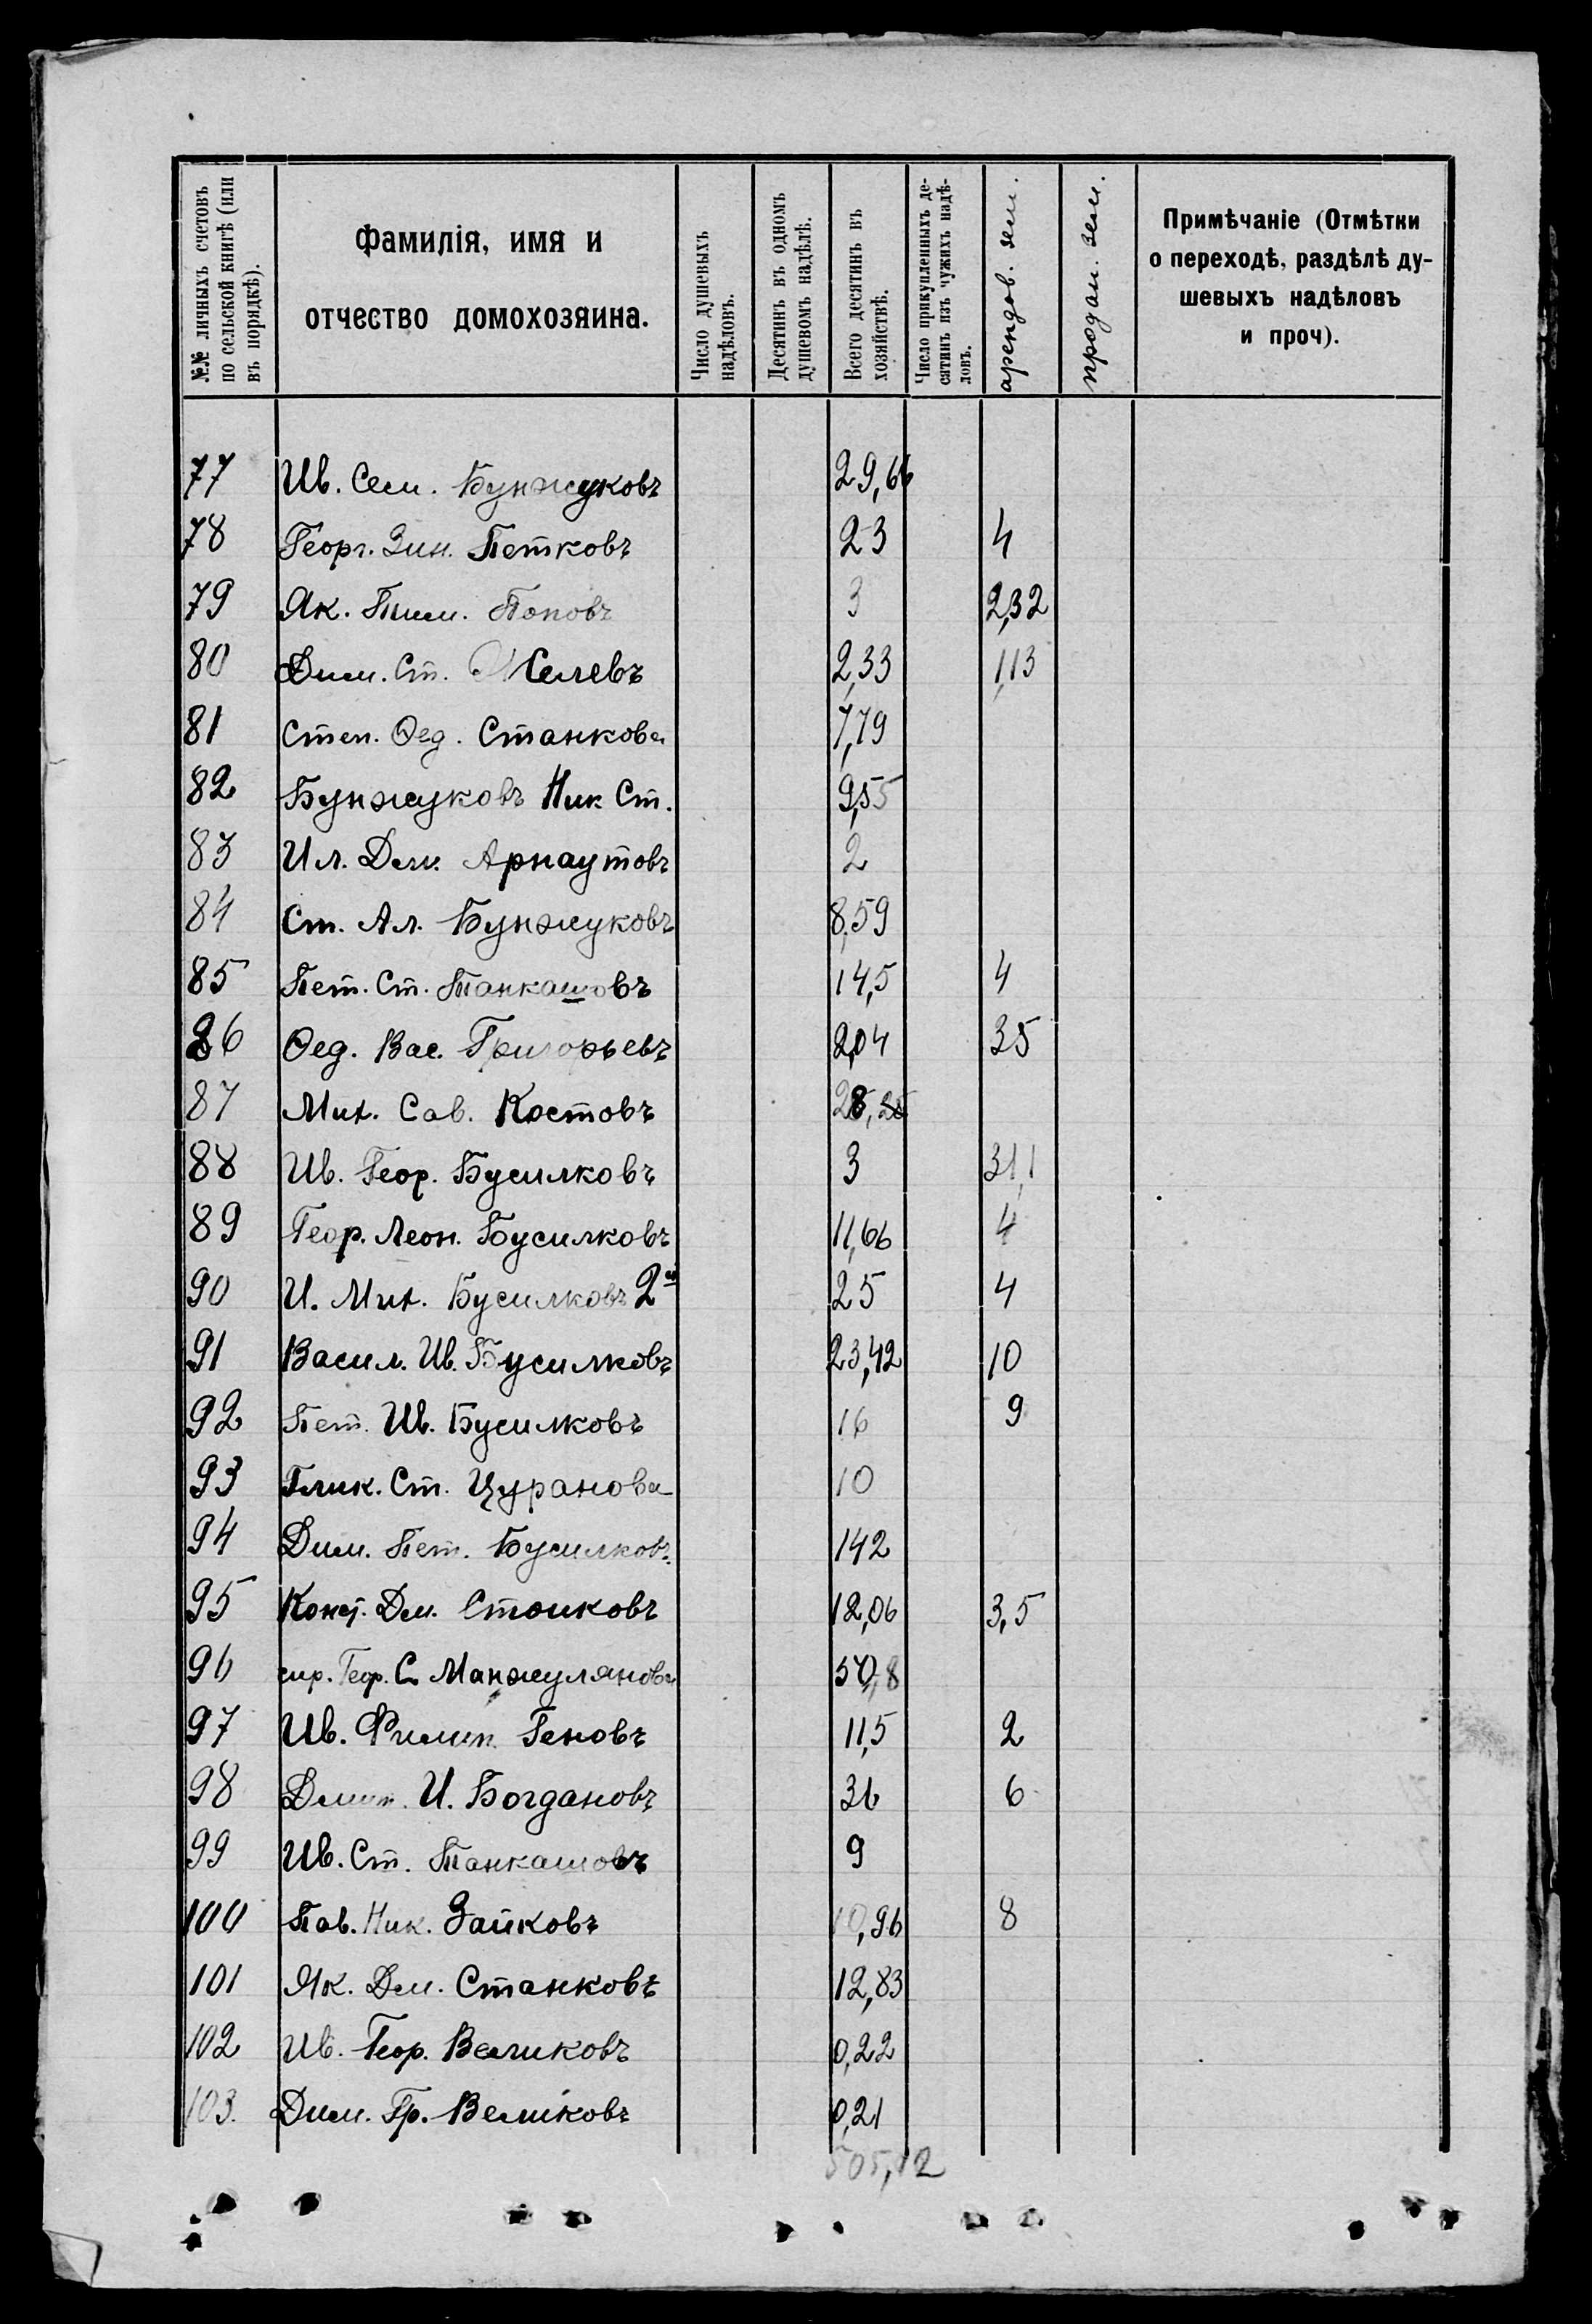 №№ личныхъ счетовъ
по сельской книгѣ (или
въ порядкѣ).
Фамилія, имя и
отчество домохозяина.
Число душевыхъ
надѣловъ.
Десятинъ въ одномъ
душевомъ надѣлѣ.
Всего десятинъ въ
хозяйствѣ.
Число прикупленныхъ де-
сятинъ изъ чужихъ надѣ-
ловъ.
арендов. зем.
продан. зем.
Примѣчаніе (Отмѣтки
о переходѣ, раздѣлѣ ду-
шевыхъ надѣловъ
и проч).
77 Ив. Сем. Бунжуковъ 29,66
78 Георг. Зин. Петковъ 23 4
79 Як. Тим. Поповъ 3 2,32
80 Дим. Ст. Желевъ 2,33 1,13
81 Степ. Ѳед. Станкова 7,79
82 Бунжуковъ Ник Ст. 9,55
83 Ил. Дм. Арнаутовъ 2
84 Ст. Ал. Бунжуковъ 8,59
85 Пет. Ст. Танкашовъ 14,5 4
86 Ѳед. Вас. Григорьевъ 2,04 35
87 Мих. Сав. Костовъ
88 Ив. Геор. Бусилковъ 3 31,1
89 Геор. Леон. Бусилковъ 11,66 4
90 И. Мих. Бусилковъ 2й 25 4
91 Васил. Ив. Бусилковъ 23,42 10
92 Пет. Ив. Бусилковъ 16 9
93 Глик. Ст. Цуранова 10
94 Дим. Пет. Бусилковъ 142
95 Конст. Дм. Стоиковъ 12,06 3,5
96 сир. Геор. С. Манжулянова 50,8
97 Ив. Филип. Геновъ 11,5 2
98 Дмит. И. Богдановъ 36 6
99 Ив. Ст. Танкашовъ 9
100 Пав. Ник. Зайковъ 10,96 8
101 Як. Дм. Станковъ 12,83
102 Ив. Геор. Великовъ 0,22
103. Дим. Гр. Веліковъ 0,21
505,12